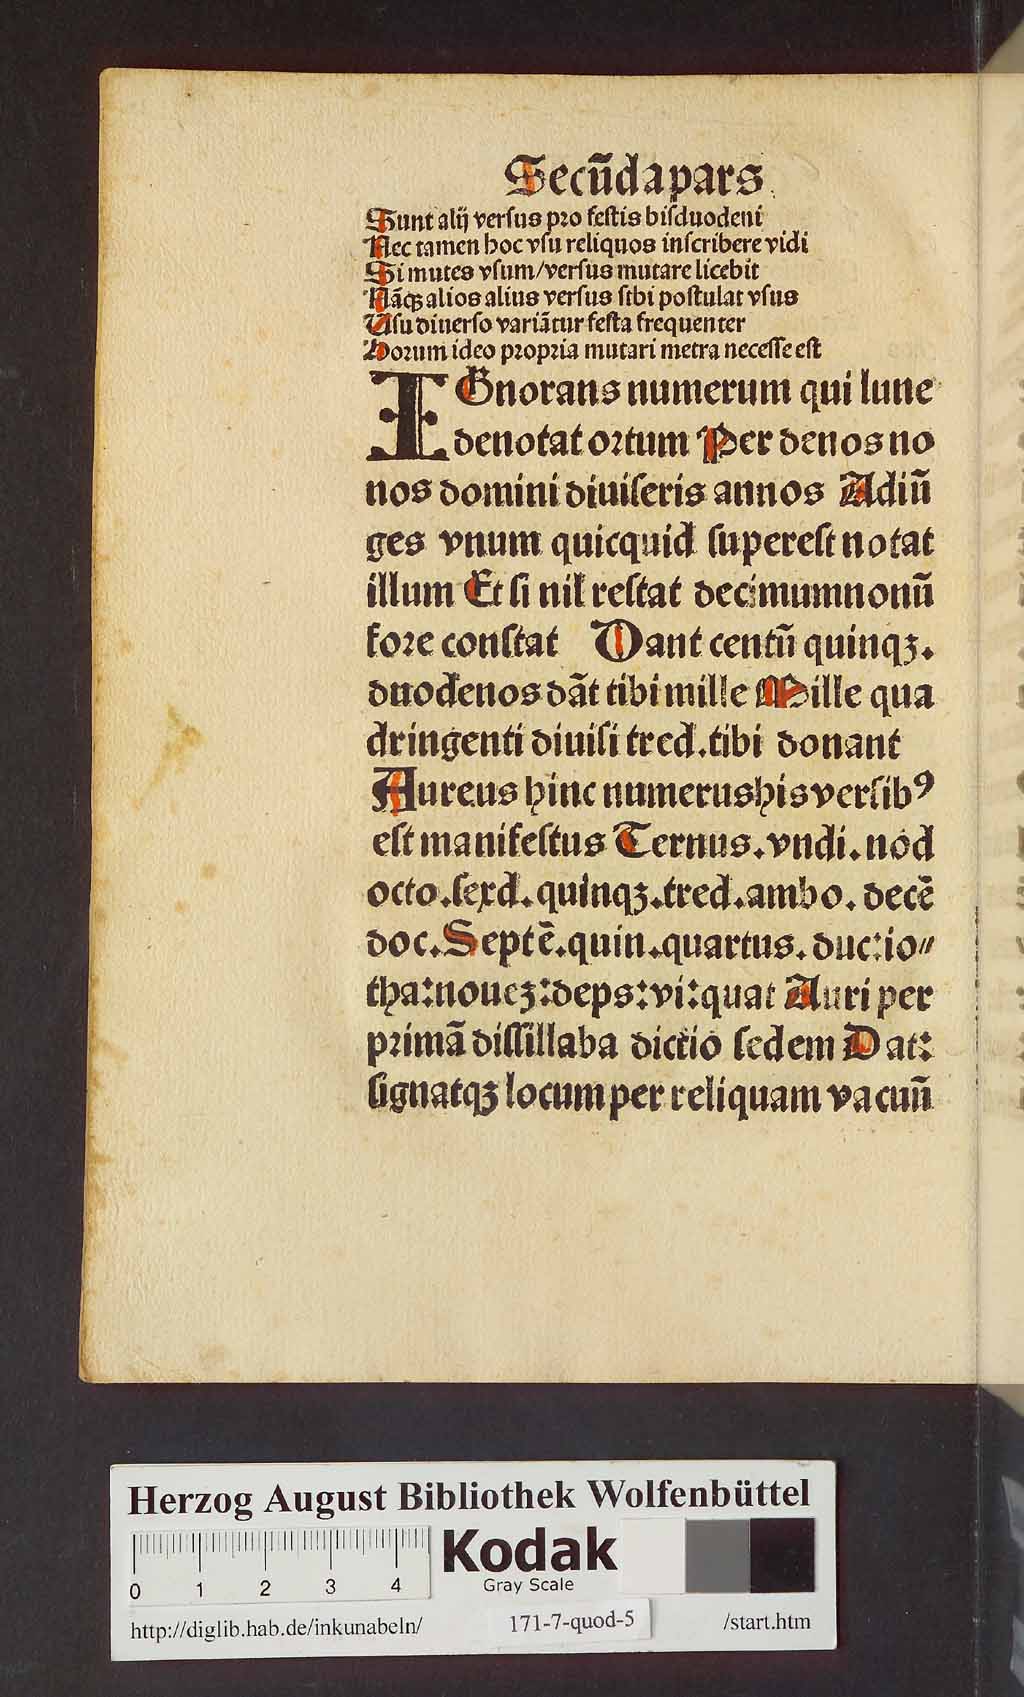 Secūda pars
Sunt alij versus pro festis bisduodeni
Nec tamen hoc vsu reliquos inscribere vidi
Si mutes vsum/versus mutare licebit
Nāqꝫ alios alius versus sibi postulat vsus
Usu diuerso variātur festa frequenter
Horum ideo propria mutari metra necesse est
IGnorans numerum qui lune
denotat ortum Per denos no
nos domini diuiseris annos Adiū
ges vnum quicquid superest notat
illum Et si nil restat decimumnonū
fore constat Dant centū quinqꝫ.
duodenos dāt tibi mille Mille qua
dringenti diuisi tred.tibi donant
Aureus hinc numerus his versibꝰ
est manifestus Ternus.vndi.nod
octo.sexd.quinqꝫ.tred.ambo.decē
doc.Septē.quin.quartus.duc:io⸗
tha:noueꝫ:deps:vi:quat Auri per
primā dissillaba dictio sedem Dat:
signatqꝫ locum per reliquam vacuū
Herzog August Bibliothek Wolfenbüttel
0 1 2 3 4
Kodak
Gray Scale
http://diglib.hab.de/inkunabeln/ 171-7-quod-5 /start.htm